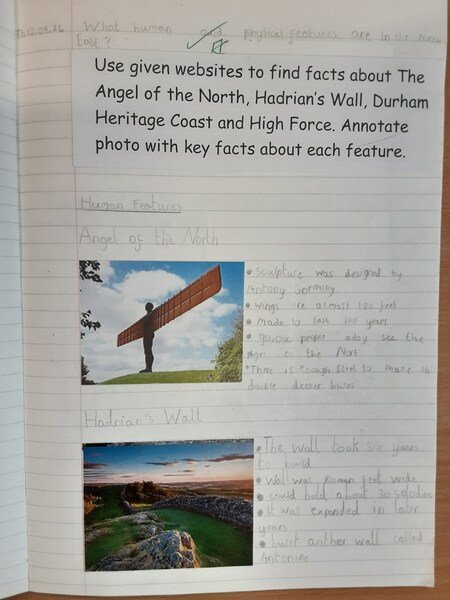 Th 12.09.24 What human and physical features are in the north
East?
Use given websites to find facts about The
Angel of the North, Hadrian's Wall, Durham
Heritage Coast and High Force. Annotate
photo with key facts about each feature.
Human Features
Angel of the North
• Sculpture was designed by
Antony Gormley
• wings are almost 180 feet
• Made to last 100 years
• 90,000 people a day see the
of the Nort
• There is enough steel to make 16
double decker buses
Hadrian's Wall
• The wall took six years
to build
• Wall was Roman feet wide
• could hold about 30
• it was expanded in later
years
• built another wall called
Antonine